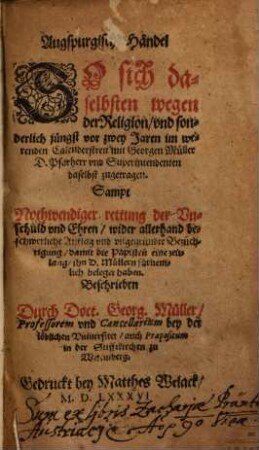 Augspurgische Händel
SO sich da-
selbsten wegen
der Religion/ vnd son-
derlich jüngst vor zwey Jaren im we-
renden Calenderstreit mit Georgen Müller
D. Pfarherr vnd Superintendenten
daselbst zugetragen.
Sampt
Nothwendiger rettung der Vn-
schuld vnd Ehren/ wider allerhand be-
schwerliche Aufflag vnd vngegründte Bezüch-
tigung/ damit die Papisten eine zeit-
lang/ ihn D. Müllern/ fürnem-
lich beleget haben.
Beschrieben
Durch Doct. Georg. Müller/
Professorem vnd Cancellarium bey der
löblichen Vniversitet/ auch Præpositum
in der Stifftkirchen zu
Wittenberg.
Gedruckt bey Matthes Welack/
M. D. LXXXVI
Sum ex libris Zachariæ
Austriaci